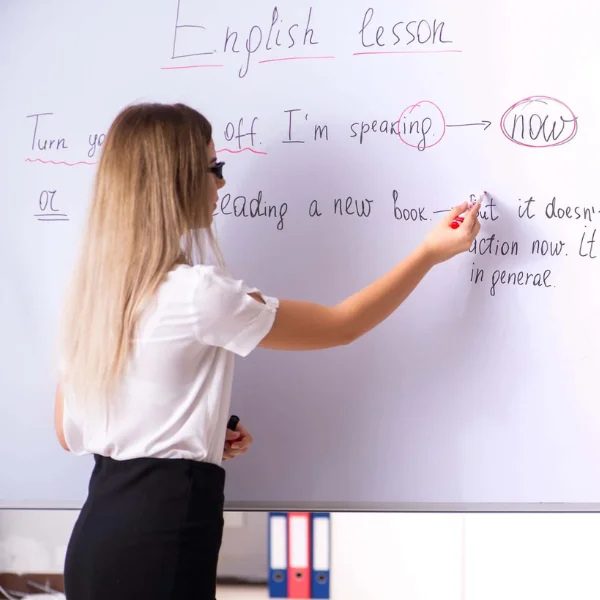 English lesson
Turn off. I'm speaking. → now
or a new book. — it doesn'
action now. It
in general.